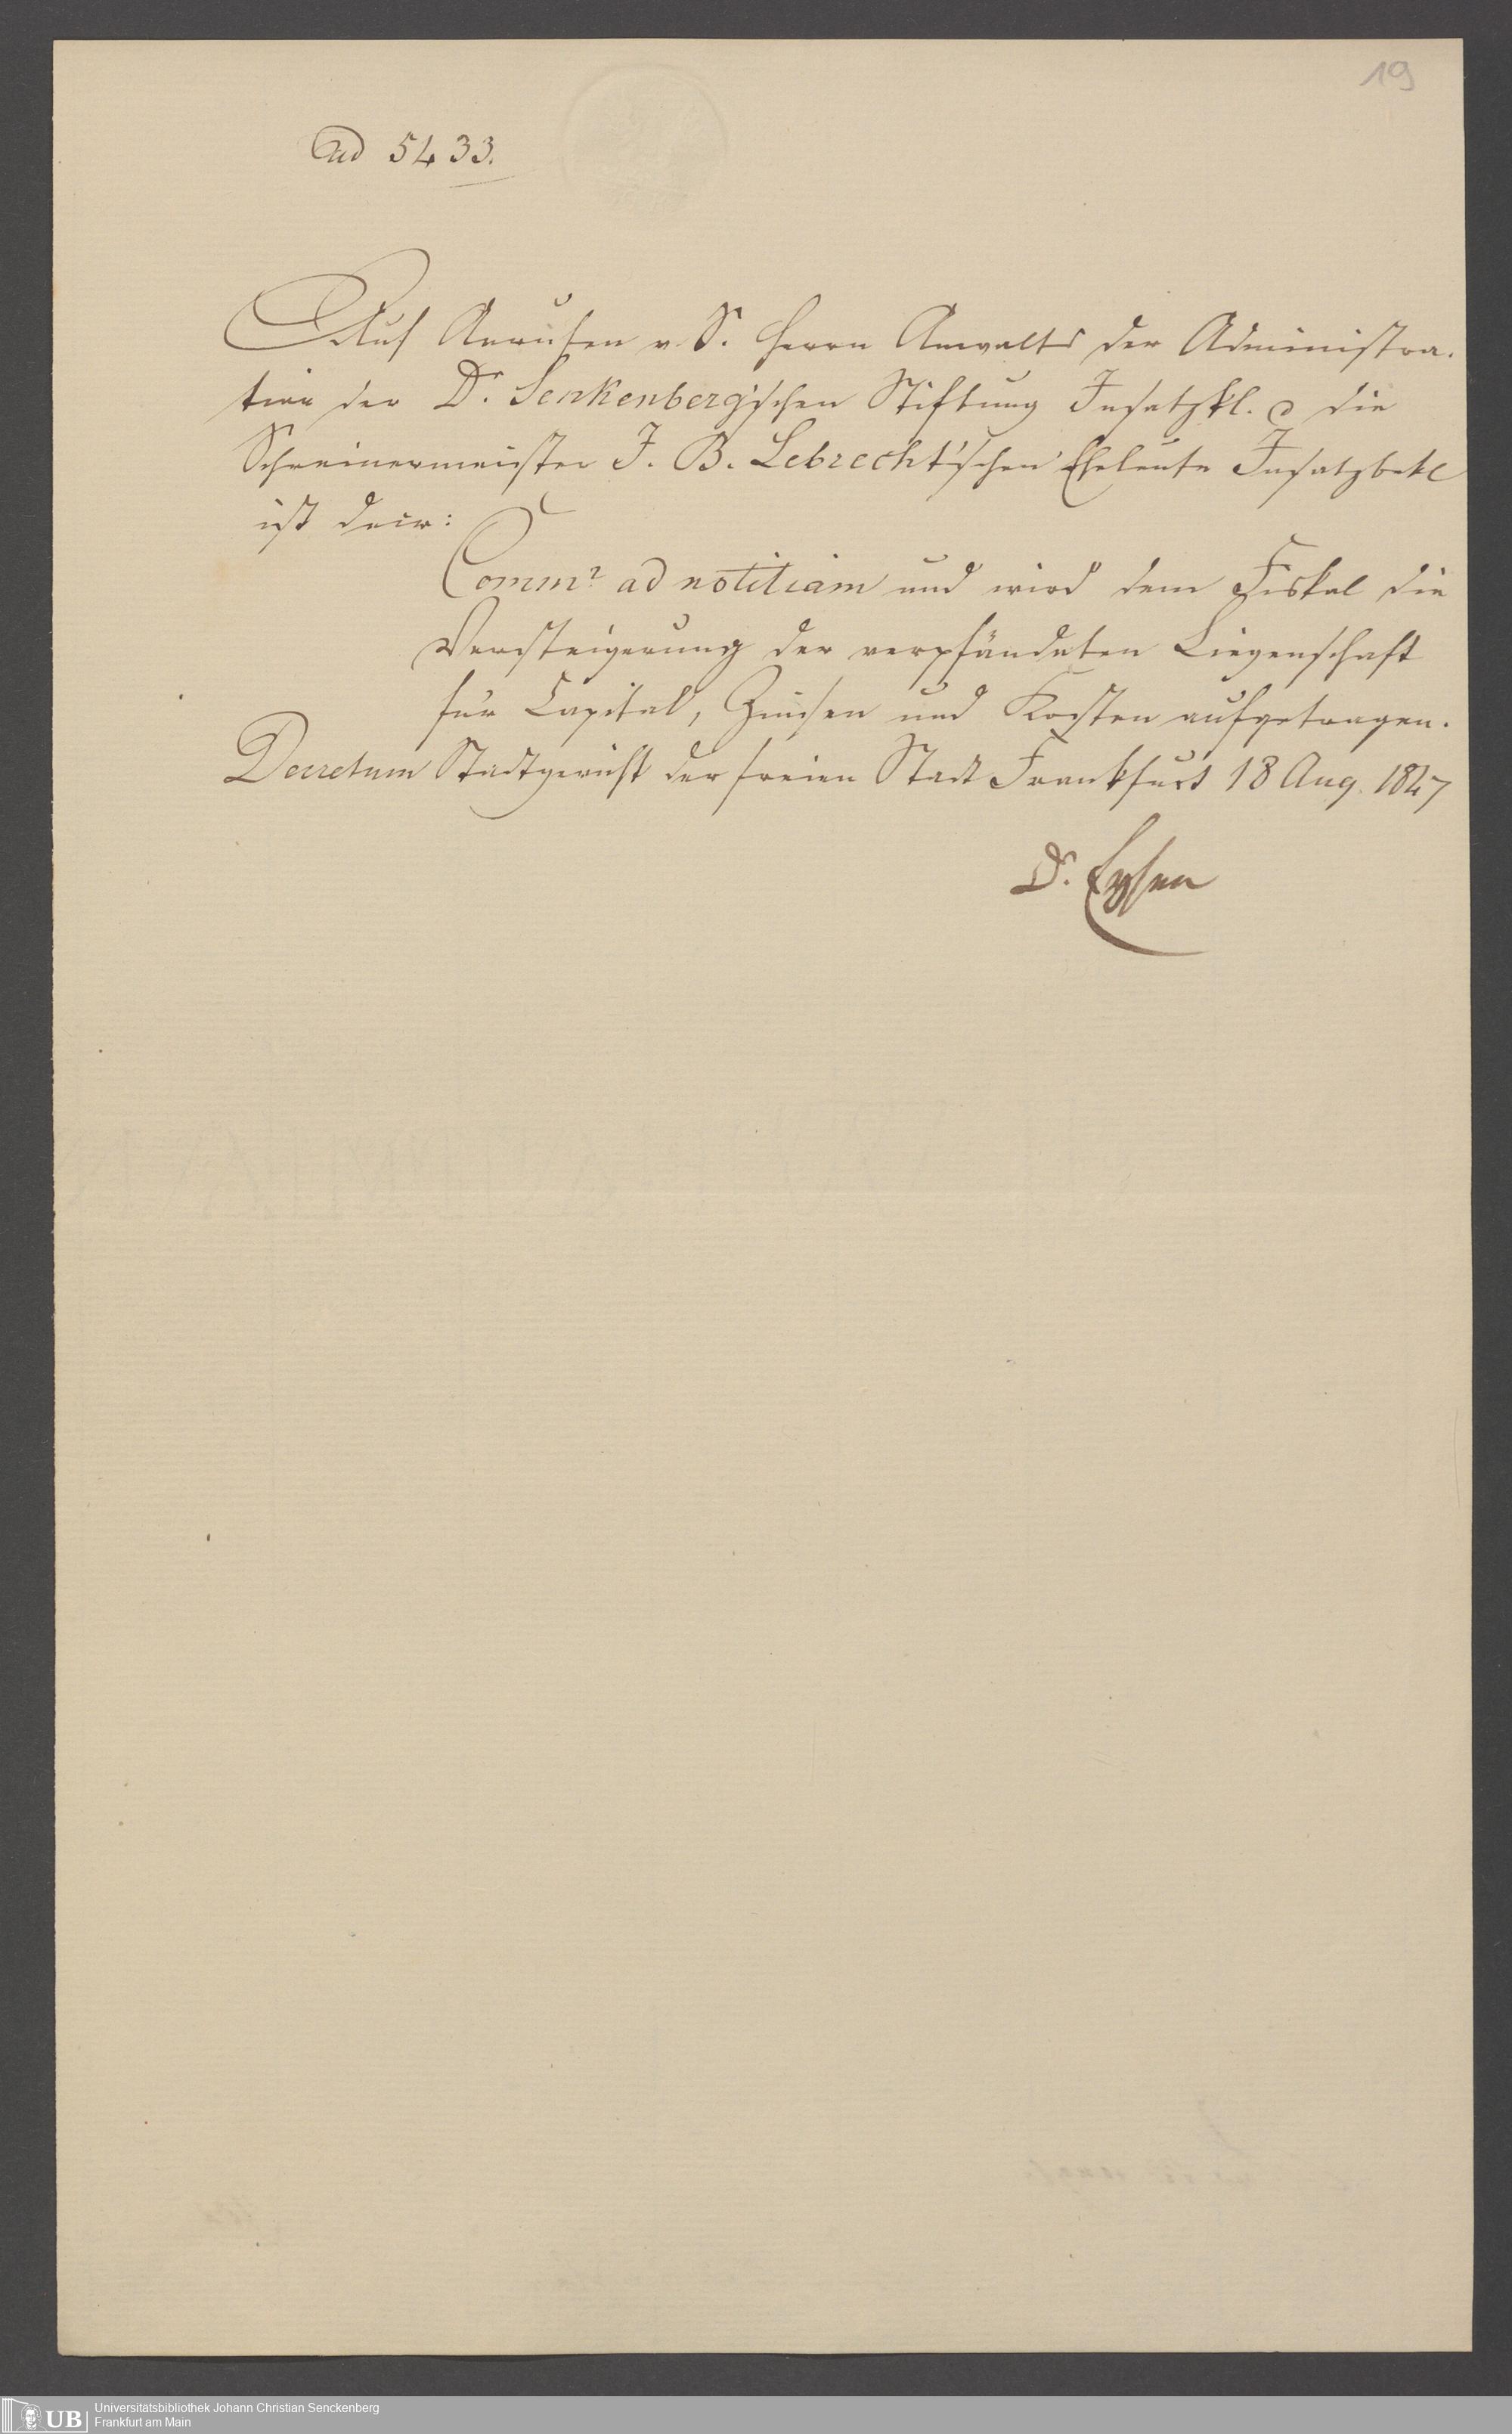 19
Ad 5433.
Auf Anrufen v. S. Herrn Anwalts der Administra-
tion der Dr. Senkenberg'schen Stiftung Insatzkl. die
Schreinermeister J. B. Lebrecht'schen Eheleute Insatzbekl
ist decr:
Comm? ad notitiam und wird dem Fiskal die
Versteigerung der verpfändeten Liegenschaft
für Capital, Zinsen und Kosten aufgetragen.
Decretum Stadtgericht der freien Stadt Frankfurt 18 Aug. 1847
Dr. Eysen
UB
Universitätsbibliothek Johann Christian Senckenberg
Frankfurt am Main